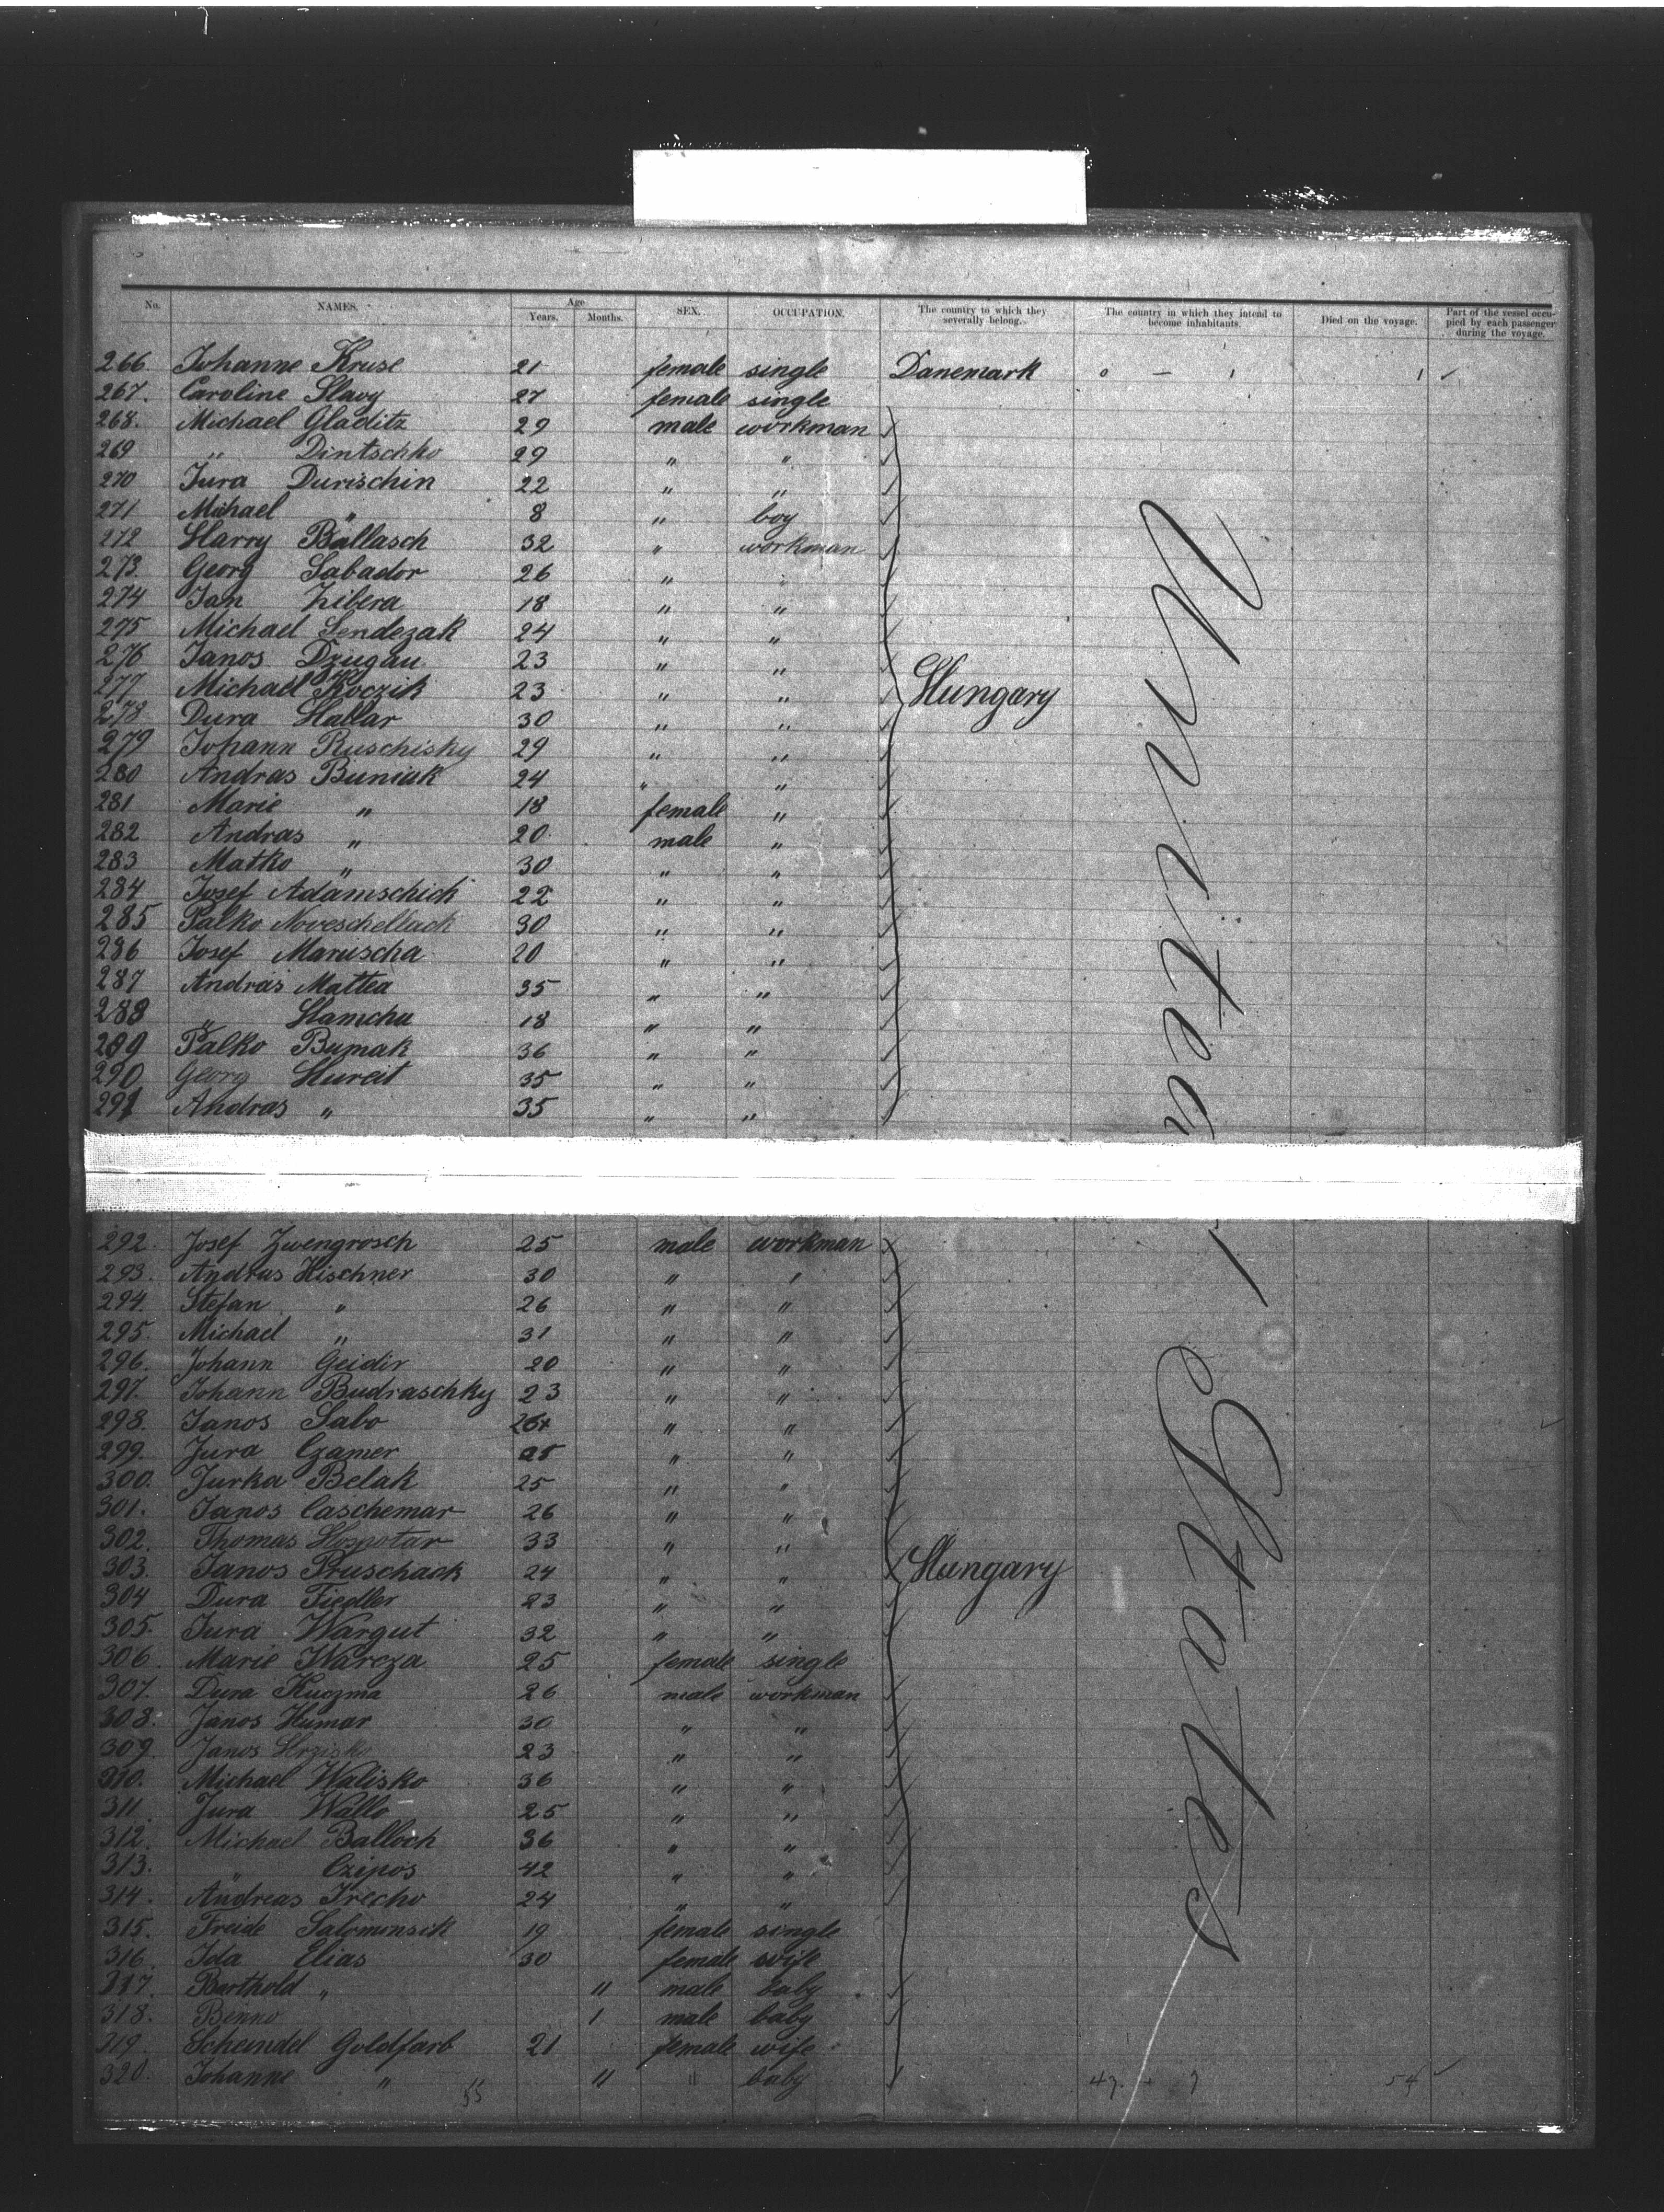 No. NAMES. Age Years. Months. SEX. OCCUPATION. The country to which they severally belong. The country in which they intend to become inhabitants. Died on the voyage. Part of the vessel occupied by each passenger during the voyage.
266. Johanne Kruse 21 female single Danemark 0 — 1 1 ✓
267. Caroline Slavy 27 female single
268. Michael Gladitz 29 male workman
269 " Dintschko 29 " "
270 Jura Durischin 22 " "
271 Michael " 8 " boy
272 Harry Ballasch 32 " workman
273 Georg Sabador 26 " "
274 Jan Zibera 18 " "
275 Michael Sendezak 24 " "
276 Janos Dzugau 23 " "
277 Michael Koczik 23 " " Hungary
278 Dura Hallar 30 " "
279 Johann Ruschisky 29 " "
280 Andras Buniak 24 " "
281 Marie " 18 female "
282 Andras " 20 male "
283 Matko " 30 " "
284 Josef Adamschick 22 " "
285 Palko Noveschellach 30 " "
286 Josef Maruscha 20 " "
287 Andras Mattea 35 " "
288 " Hamcha 18 " "
289 Palko Bumak 36 " "
290 Georg Hureit 35 " "
291 Andras " 35 " "
United States
292. Josef Zwengrosch 25 male workman
293. Andras Hischner 30 " "
294. Stefan " 26 " "
295. Michael " 31 " "
296. Johann Geidir 20 " "
297. Johann Budraschky 23 " "
298. Janos Sabo " "
299. Jura Czamer 25 " "
300. Jurka Belak 25 " "
301. Janos Caschemar 26 " "
302. Thomas Hospotar 33 " "
303. Janos Pruschack 24 " " Hungary
304 Dura Fiedler 23 " "
305. Jura Wargut 32 " "
306. Marie Warcza 25 female single
307. Dura Kuczma 26 male workman
308. Janos Humar 30 " "
309. Janos Hrzisko 23 " "
310. Michael Walisko 36 " "
311 Jura Wallo 25 " "
312. Michael Balloch 36 " "
313. " Czipos 42 " "
314. Andreas Irecho 24 " "
315. Freide Salomonsik 19 female single
316. Ida Elias 30 female wife
317. Barthold " 11 male baby
318. Benno 1 male baby
319. Scheindel Goldfarb 21 female wife
320. Johanne " 11 " baby 47 - 7 54 ✓
55